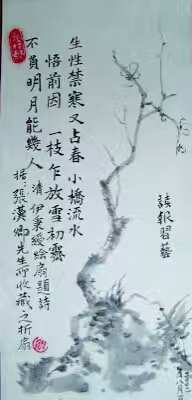 生性禁寒又占春 小橋流水
悟前因 一枝乍放雪初霽
不負明月能幾人 清 伊秉綬繪扇題詩
據:張漢卿先生所收藏之折扇
讀報習藝